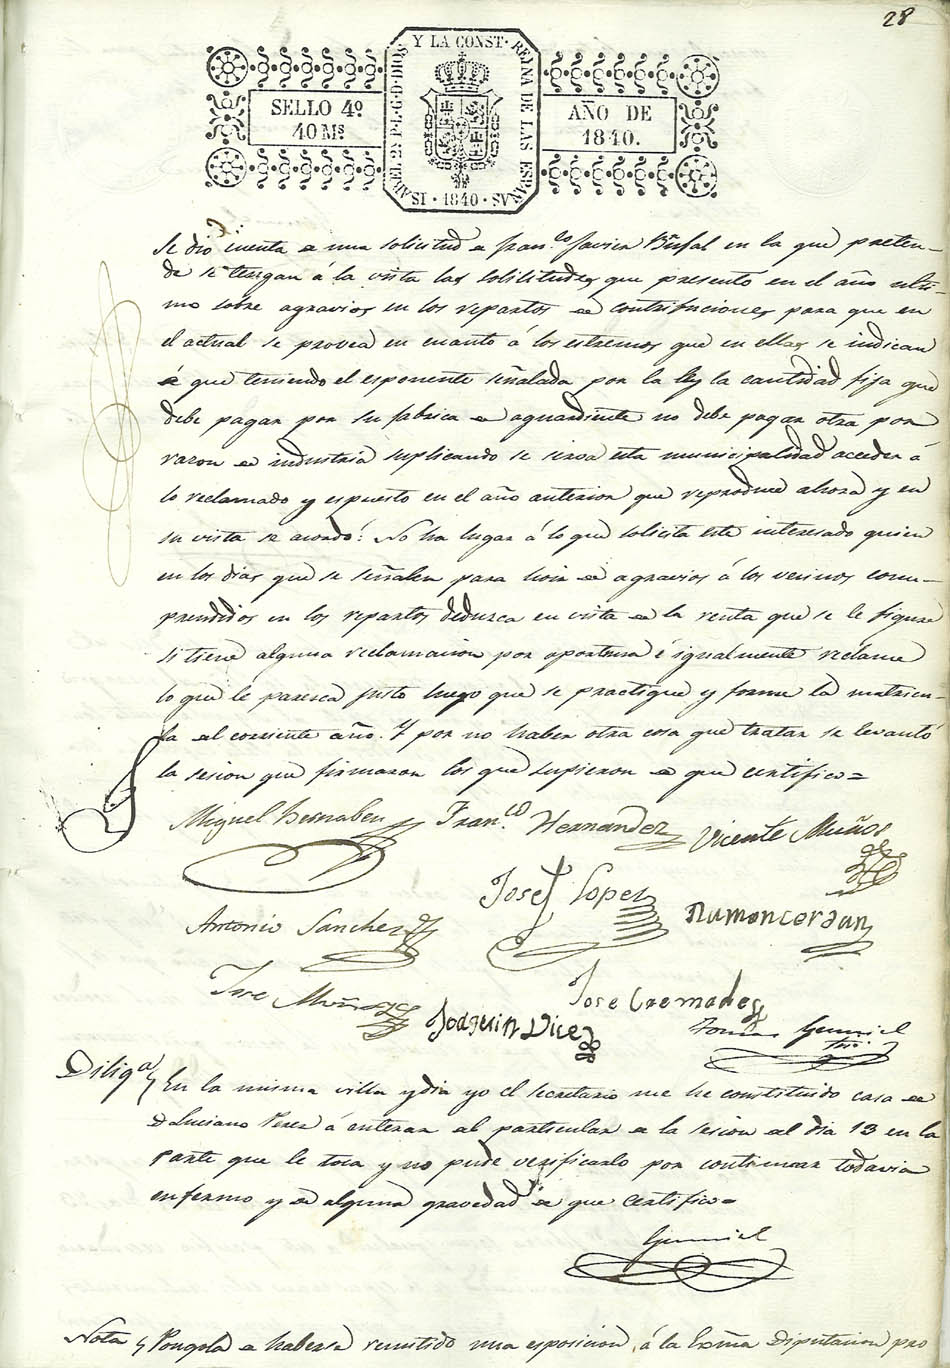 28
SELLO 4º 40 Ms.
ISABEL 2ª P.L.G.D. DIOS Y LA CONST. REINA DE LAS ESPAÑAS · 1840 ·
AÑO DE 1840.
Se dió cuenta de una solicitud de Fran.co Javier en la que preten-
de se tengan á la vista las solicitudes que presentó en el año ulti-
mo sobre agravios en los repartos de contribuciones para que en
el actual se provea en cuanto á los estremos que en ellas se indican
á que teniendo el esponente señalada por la ley la cantidad fija que
debe pagar por su fabrica de aguardiente no debe pagar otra por
razon de industria suplicando se sirva esta municipalidad acceder á
lo reclamado y espuesto en el año anterior que reproduce ahora y en
su vista se acordó: No ha lugar á lo que solicita este interesado quien
en los dias que se señalen para hoir de agravios á los vecinos com-
prendidos en los repartos deduzca en vista de la renta que se le figure
si tiene alguna reclamacion por oportuna é igualmente reclame
lo que le paresca justo luego que se practique y forme la matricu-
la del corriente año. Y por no haber otra cosa que tratar se levantó
la sesion que firmaron los que supieron de que certifico=
Miguel Bernabeu Fran.co Hernandez Vicente Muños
Jose Lopez
Antonio Sanchez Ramon Cerdan
Jose Muños Jose Cremades
Joaquin Vice Tomas Gumiel
Srio.
Dilig.a En la misma villa y dia yo el secretario me he constituido casa de
D. Luciano Perez á enterar al particular de la sesion del dia 13 en la
parte que le toca y no pude verificarlo por continuar todavia
enfermo y de alguna gravedad de que certifico=
Gumiel
Nota haberse remitido una esposicion á la Exma Diputacion pro